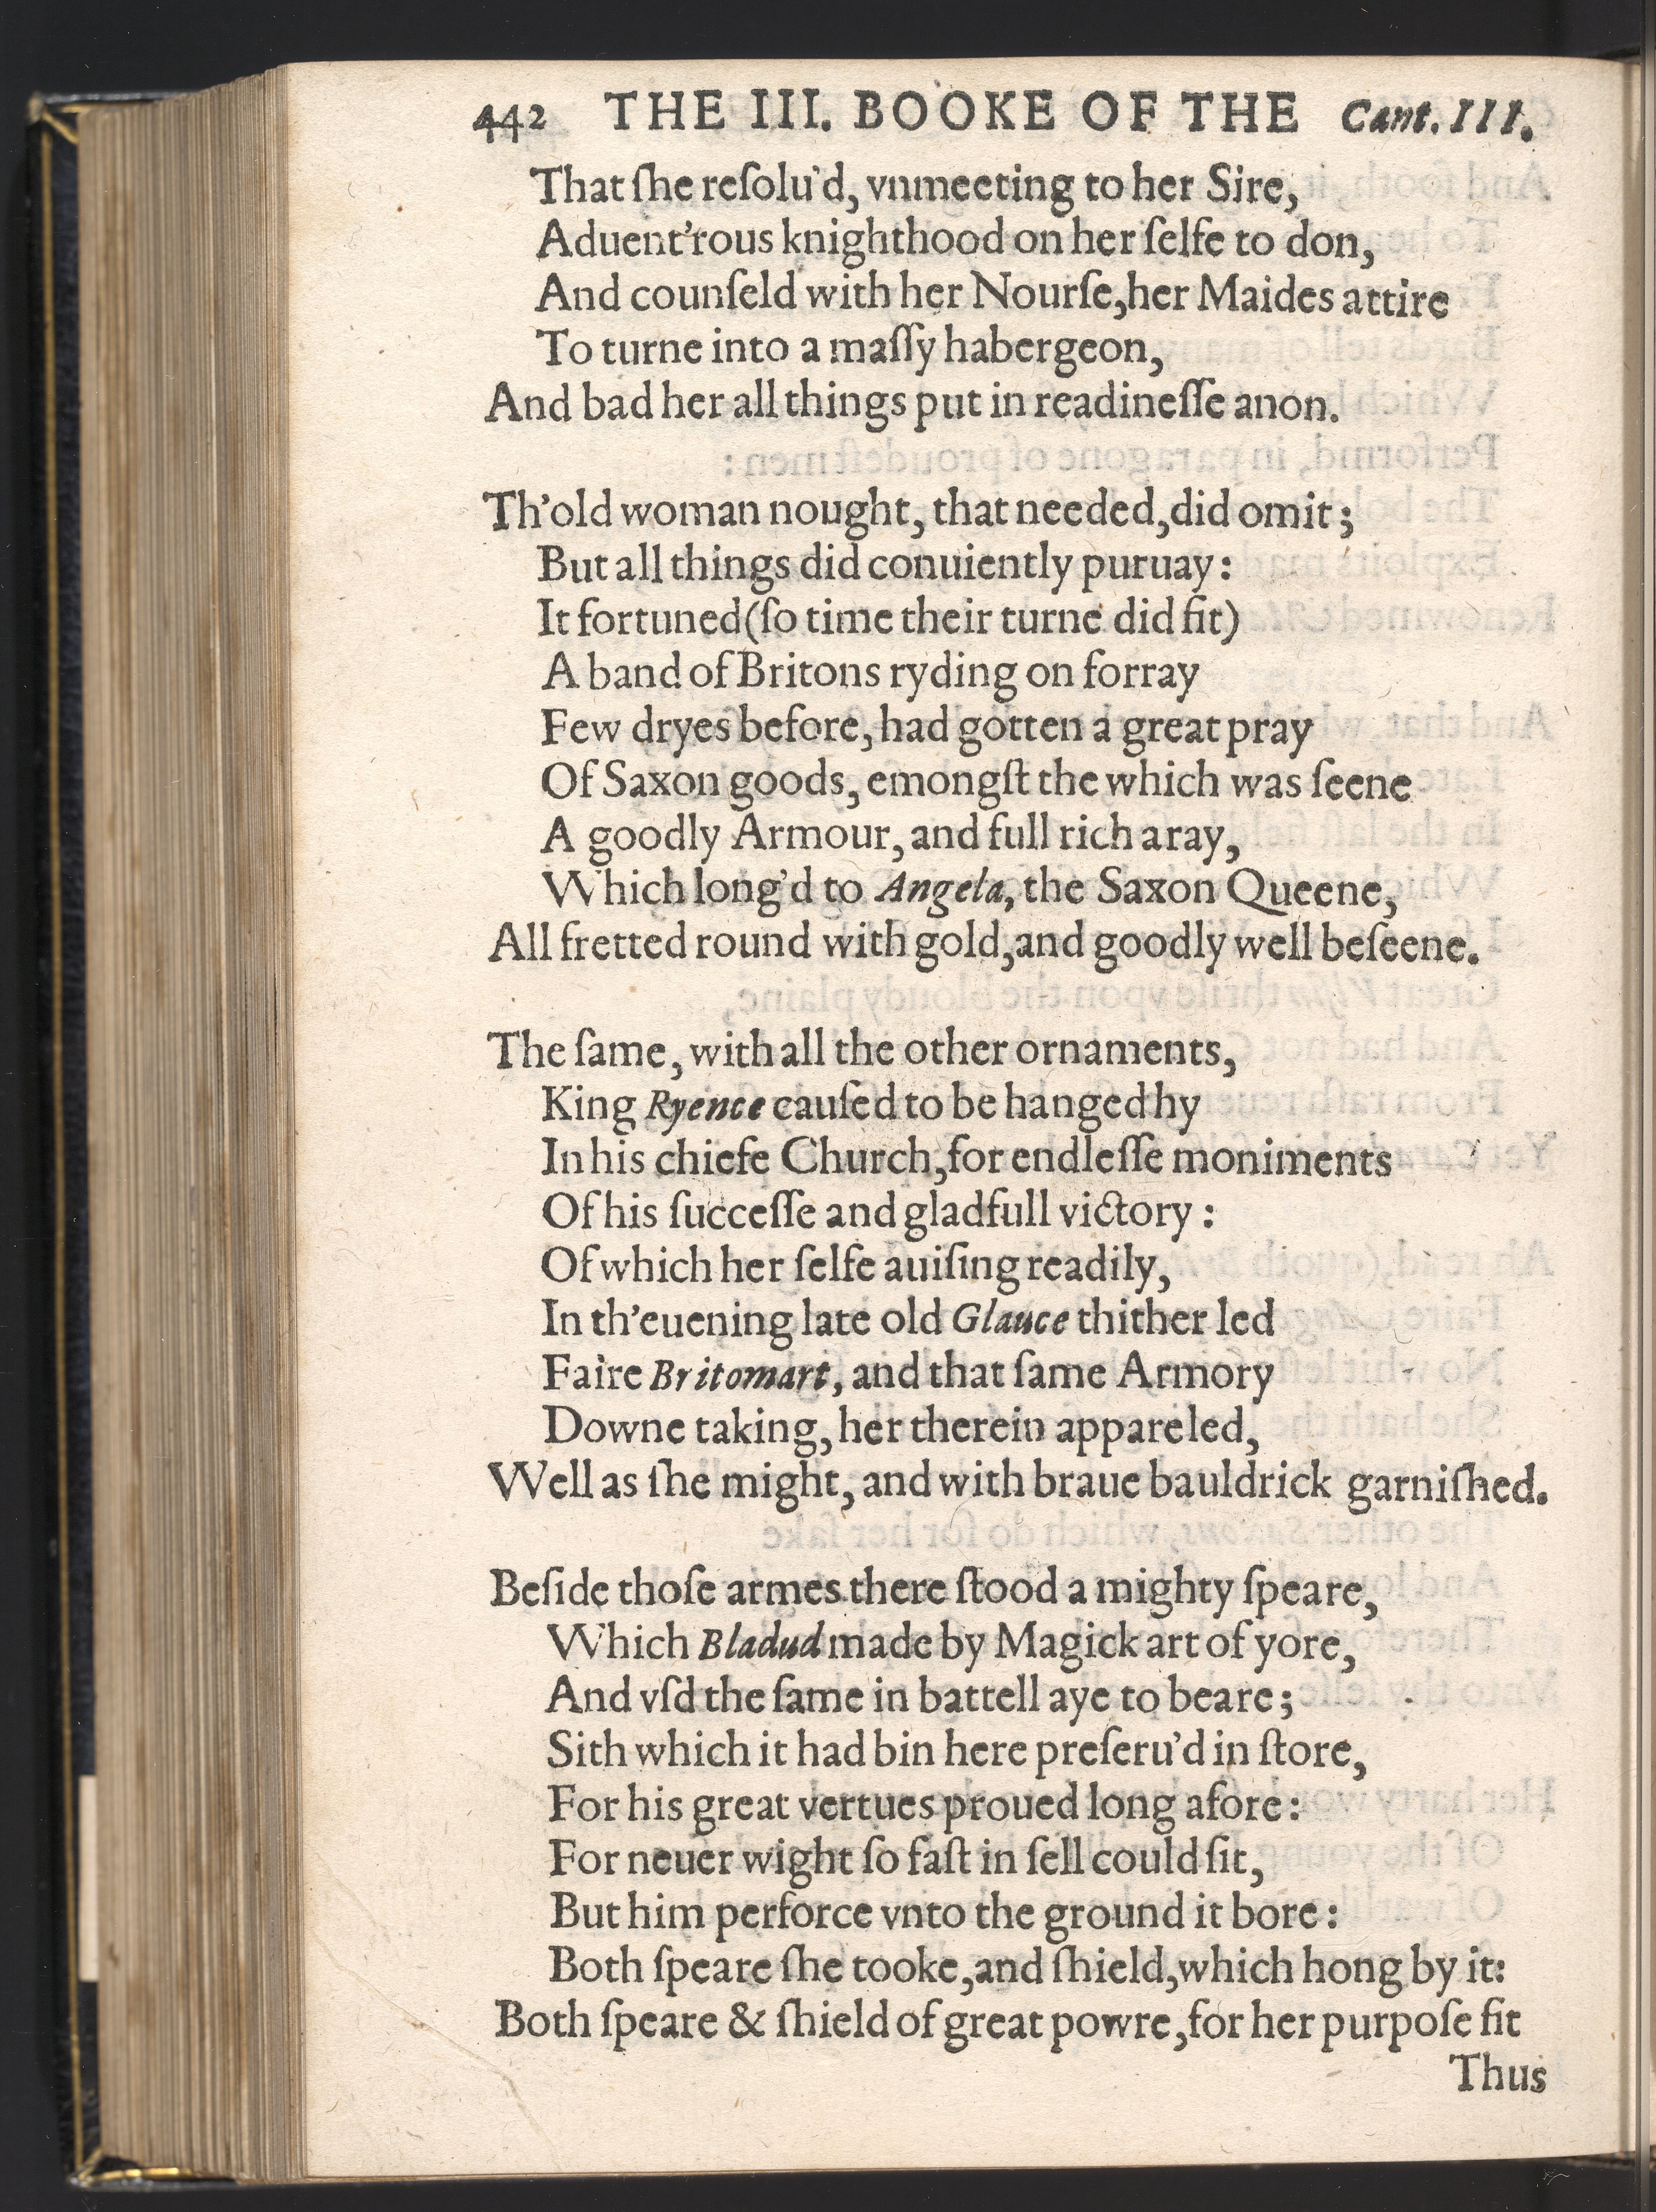 442 THE III. BOOKE OF THE Cant. III.
That ſhe reſolu'd, vnmeeting to her Sire,
Aduent'rous knighthood on her ſelfe to don,
And counſeld with her Nourſe, her Maides attire
To turne into a maſſy habergeon,
And bad her all things put in readineſſe anon.
Th'old woman nought, that needed, did omit;
But all things did conuiently puruay:
It fortuned (ſo time their turne did fit)
A band of Britons ryding on forray
Few dryes before, had gotten a great pray
Of Saxon goods, emongſt the which was ſeene
A goodly Armour, and full rich aray,
Which long'd to Angela, the Saxon Queene,
All fretted round with gold, and goodly well beſeene.
The ſame, with all the other ornaments,
King Ryence cauſed to be hanged hy
In his chiefe Church, for endleſſe moniments
Of his ſucceſſe and gladfull victory:
Of which her ſelfe auiſing readily,
In th'euening late old Glauce thither led
Faire Britomart, and that ſame Armory
Downe taking, her therein appareled,
Well as ſhe might, and with braue bauldrick garniſhed.
Beſide thoſe armes there ſtood a mighty ſpeare,
Which Bladud made by Magick art of yore,
And vſd the ſame in battell aye to beare;
Sith which it had bin here preſeru'd in ſtore,
For his great vertues proued long afore:
For neuer wight ſo faſt in ſell could ſit,
But him perforce vnto the ground it bore:
Both ſpeare ſhe tooke, and ſhield, which hong by it:
Both ſpeare & ſhield of great powre, for her purpoſe fit
Thus